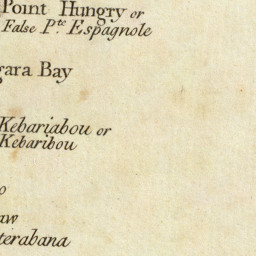 Point Hungry or
False Pte. Espagnole
gara Bay
Kebariabou or
Kebaribou
o
aw
terabana